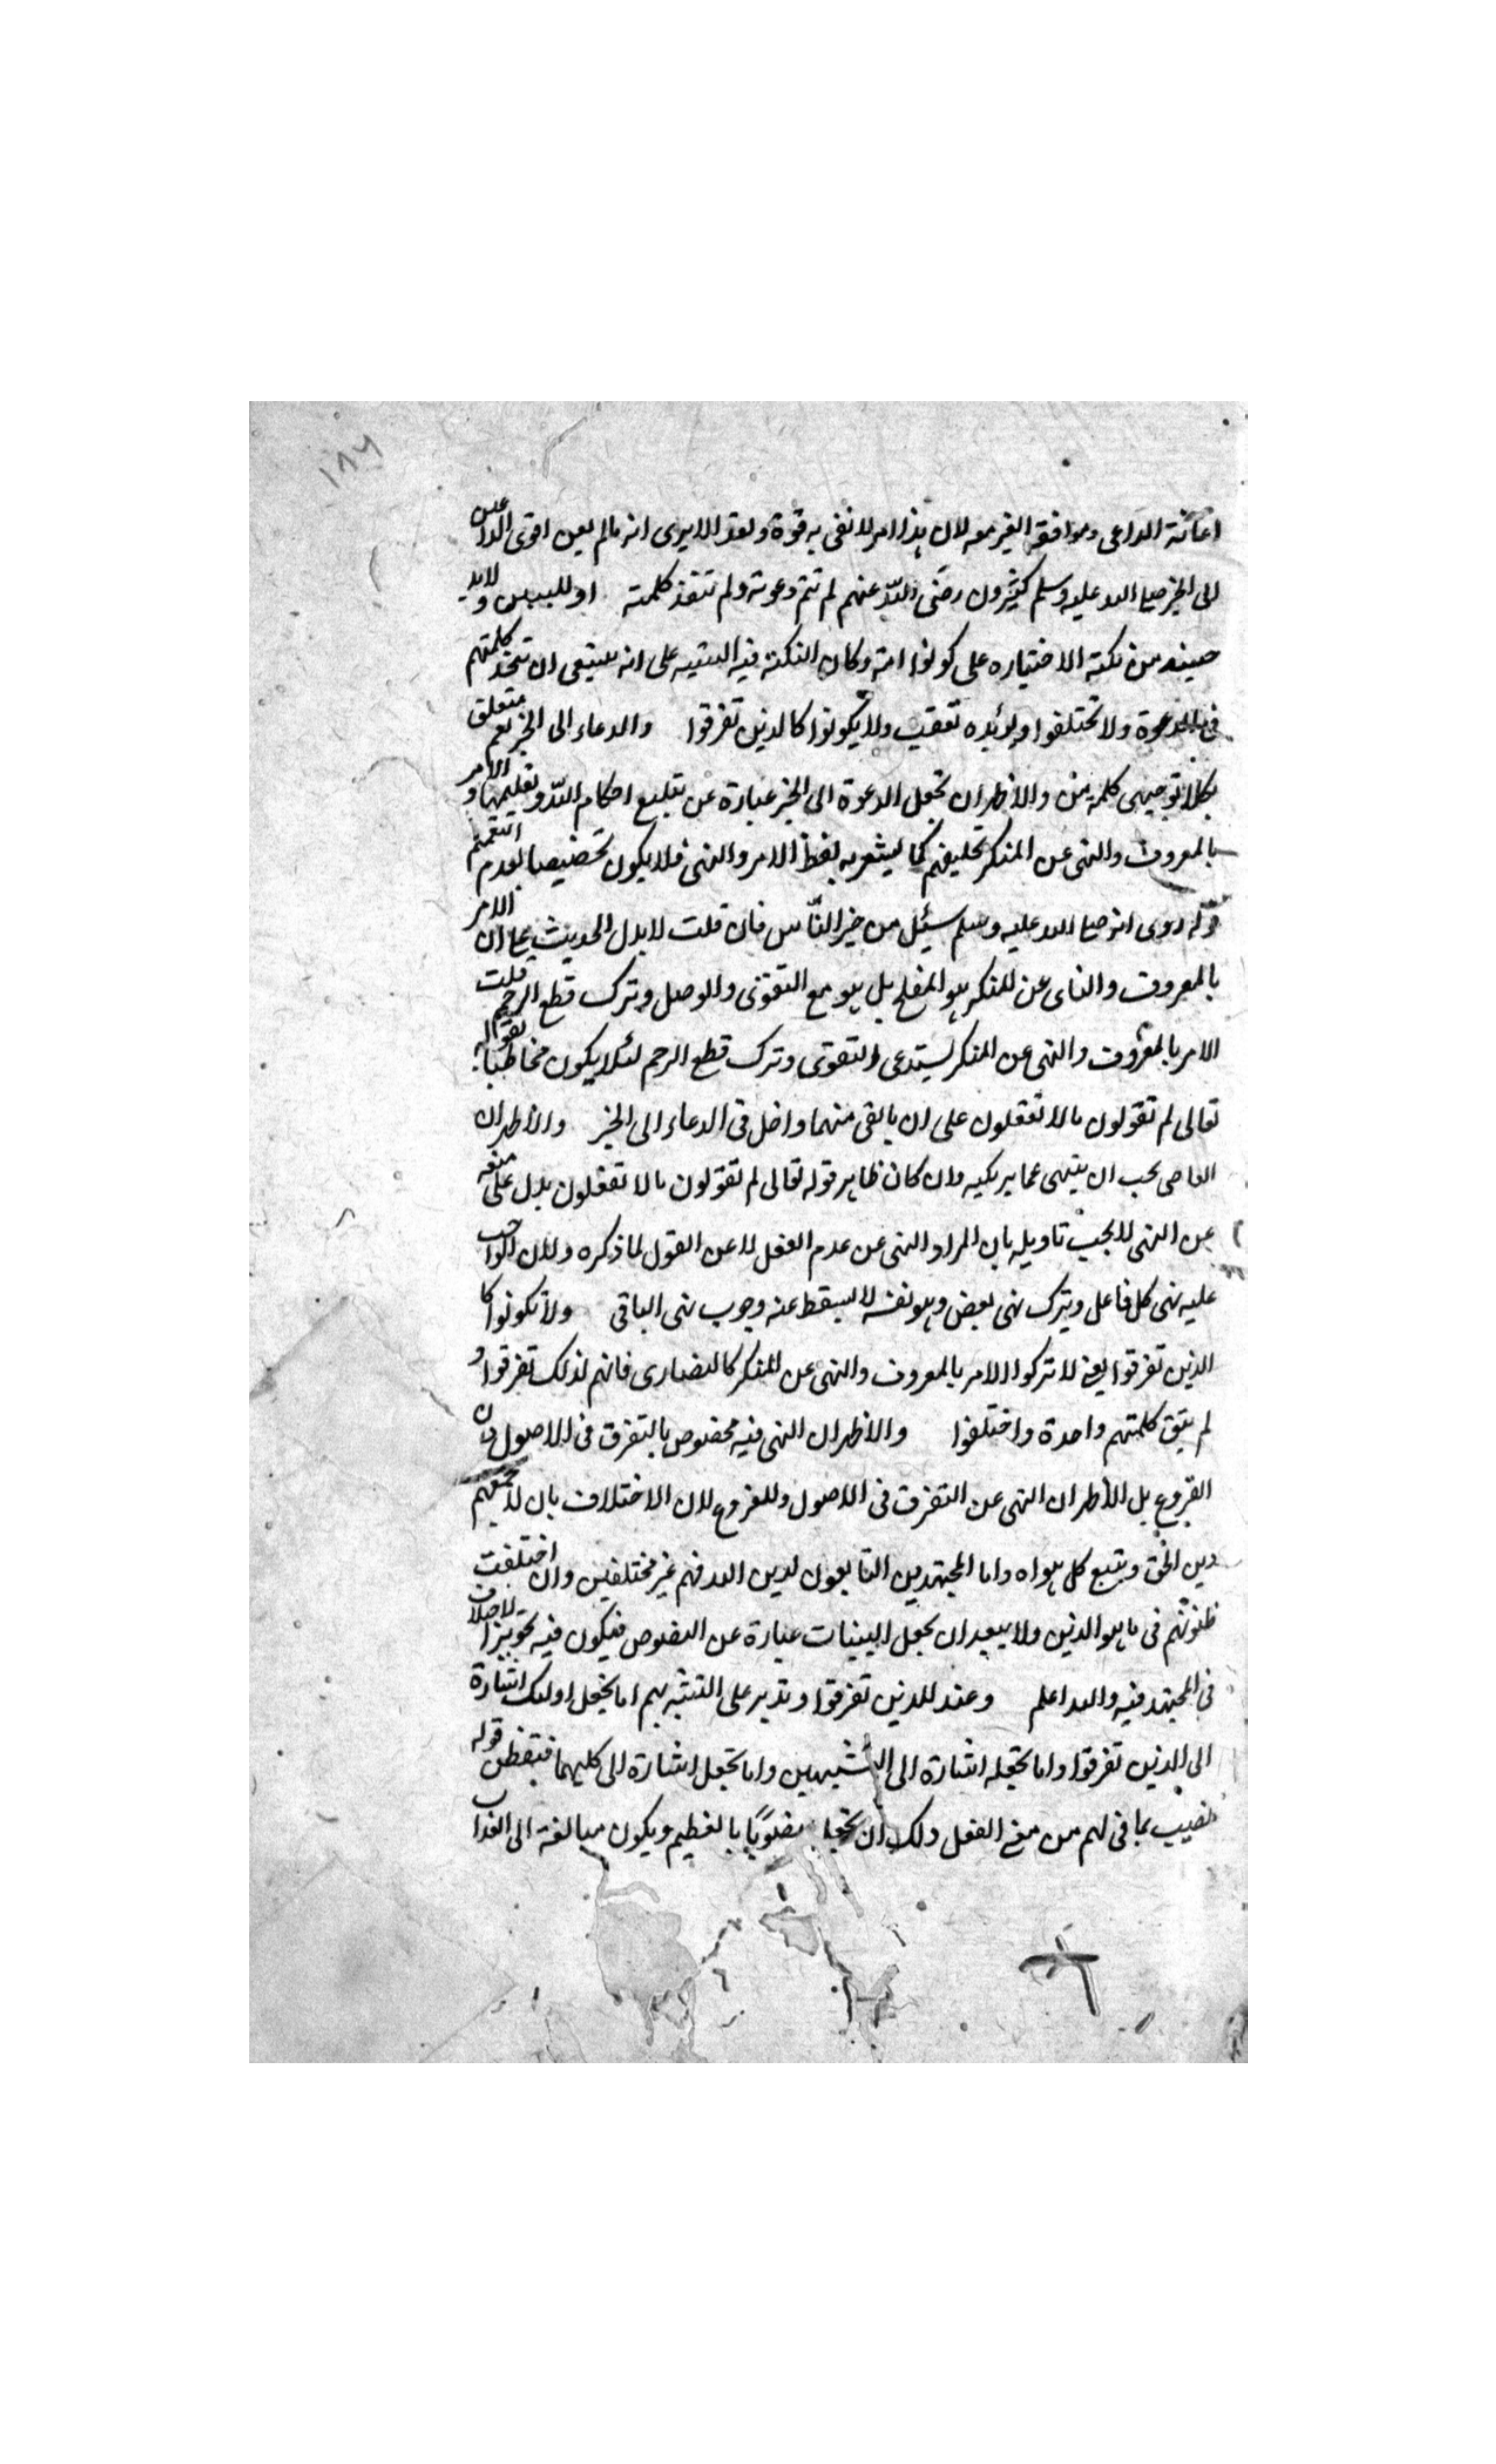 ١٨٦
اعانة الداعى وموافقة الغير معه لان هذا امر لا تفى به قوة واحد الا يرى انه ما لم يعن اقوى الداعين
الى الخير صلى الله عليه وسلم كثيرون رضى الله عنهم لم تتم دعوته ولم تنفذ كلمته او للتبيين ولابد
حينئذ من نكتة الاختياره على كونوا امة وكان النكتة فيه التنبيه على انه ينبغى ان تتحد كلمتهم
فى الدعوة ولا تختلفوا ويؤيده تعقيب ولا يكونوا كالذين تفرقوا والدعاء الى الخير يعم متعلق
بكلا توجيهى كلمة من والاظهر ان تجعل الدعوة الى الخير عبارة عن تبليغ احكام الله وتعليمها والامر
بالمعروف والنهى عن المنكر تكليفهم كما يشعر به لفظ الامر والنهى فلا يكون تخصيصا بعد التعميم
قوله روى انه صلى الله عليه وسلم سئل من خير الناس فان قلت لا يدل الحديث على ان الامر
بالمعروف والناهى عن المنكر هو المفلح بل هو مع التقوى والوصل وترك قطع الرحم قلت
الامر بالمعروف والنهى عن المنكر يستدعى التقوى وترك قطع الرحم لئلا يكون مخاطبا بقوله
تعالى لم تقولون ما لا تفعلون على ان ما بقى منهما داخل فى الدعاء الى الخير والاظهر ان
العاصى يجب ان ينهى عما يرتكبه وان كان ظاهر قوله تعالى لم تقولون ما لا تفعلون يدل على منعه
عن النهى لا يجب تاويله بان المراد النهى عن عدم الفعل لا عن القول لما ذكره ولان الواجب
عليه نهى كل فاعل ويترك نهى بعض وهو نفسه لا يسقط عنه وجوب نهى الباقى ولا تكونوا كا
الذين تفرقوا يعنى لا تتركوا الامر بالمعروف والنهى عن المنكر كالنصارى فانهم لذلك تفرقوا و
لم يبق كلمتهم واحدة واختلفوا والاظهر ان النهى فيه مخصوص بالتفرق فى الاصول دون
الفروع بل الاظهر ان النهى عن التفرق فى الاصول والفروع لان الاختلاف بان لا يجمعهم
دين الحق ويتبع كل هواه واما المجتهدين التابعون لدين الله فهم غير مختلفين وان اختلفت
ظنونهم فى ما هو الدين ولا يبعد ان يجعل البينات عبارة عن النصوص فيكون فيه تجويز الاختلاف
فى المجتهد فيه والله اعلم وعند للذين تفرقوا وتدبر على التشبه بهم اما يجعل اولئك اشارة
الى الذين تفرقوا واما تجعله اشارة الى المشبهين واما تجعل اشارة الى كليهما فتفطن قوله
نصيب بما فى لهم من معنى الفعل ولك ان تجعل منصوبا بالعظيم ويكون مبالغة الى العذاب